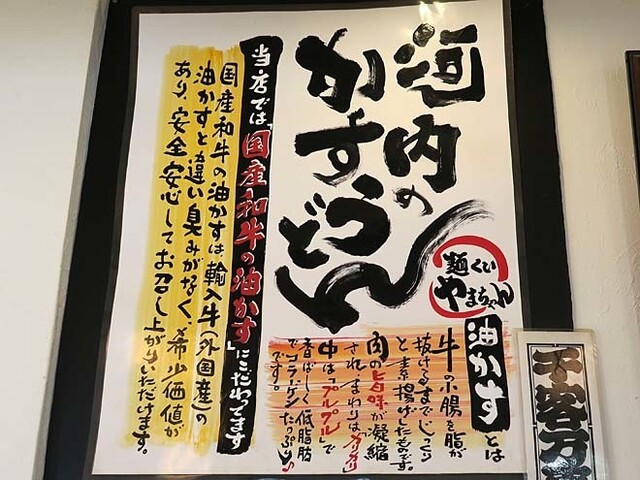 河内の
かすうどん
麺くい
やまちゃん
油かすとは
牛の小腸を脂が
抜けるまでじっくり
と素揚げしたものです。
肉の旨味が凝縮
され、まわりは「カリカリ」
中は「プルプル」で
香ばしく低脂肪
でコラーゲンたっぷり
です。
当店では「国産和牛の油かす」にこだわってます
国産和牛の油かすは輸入牛(外国産)の
油かすと違い臭みがなく、希少価値が
あり、安全安心してお召し上がりいただけます。
千客万